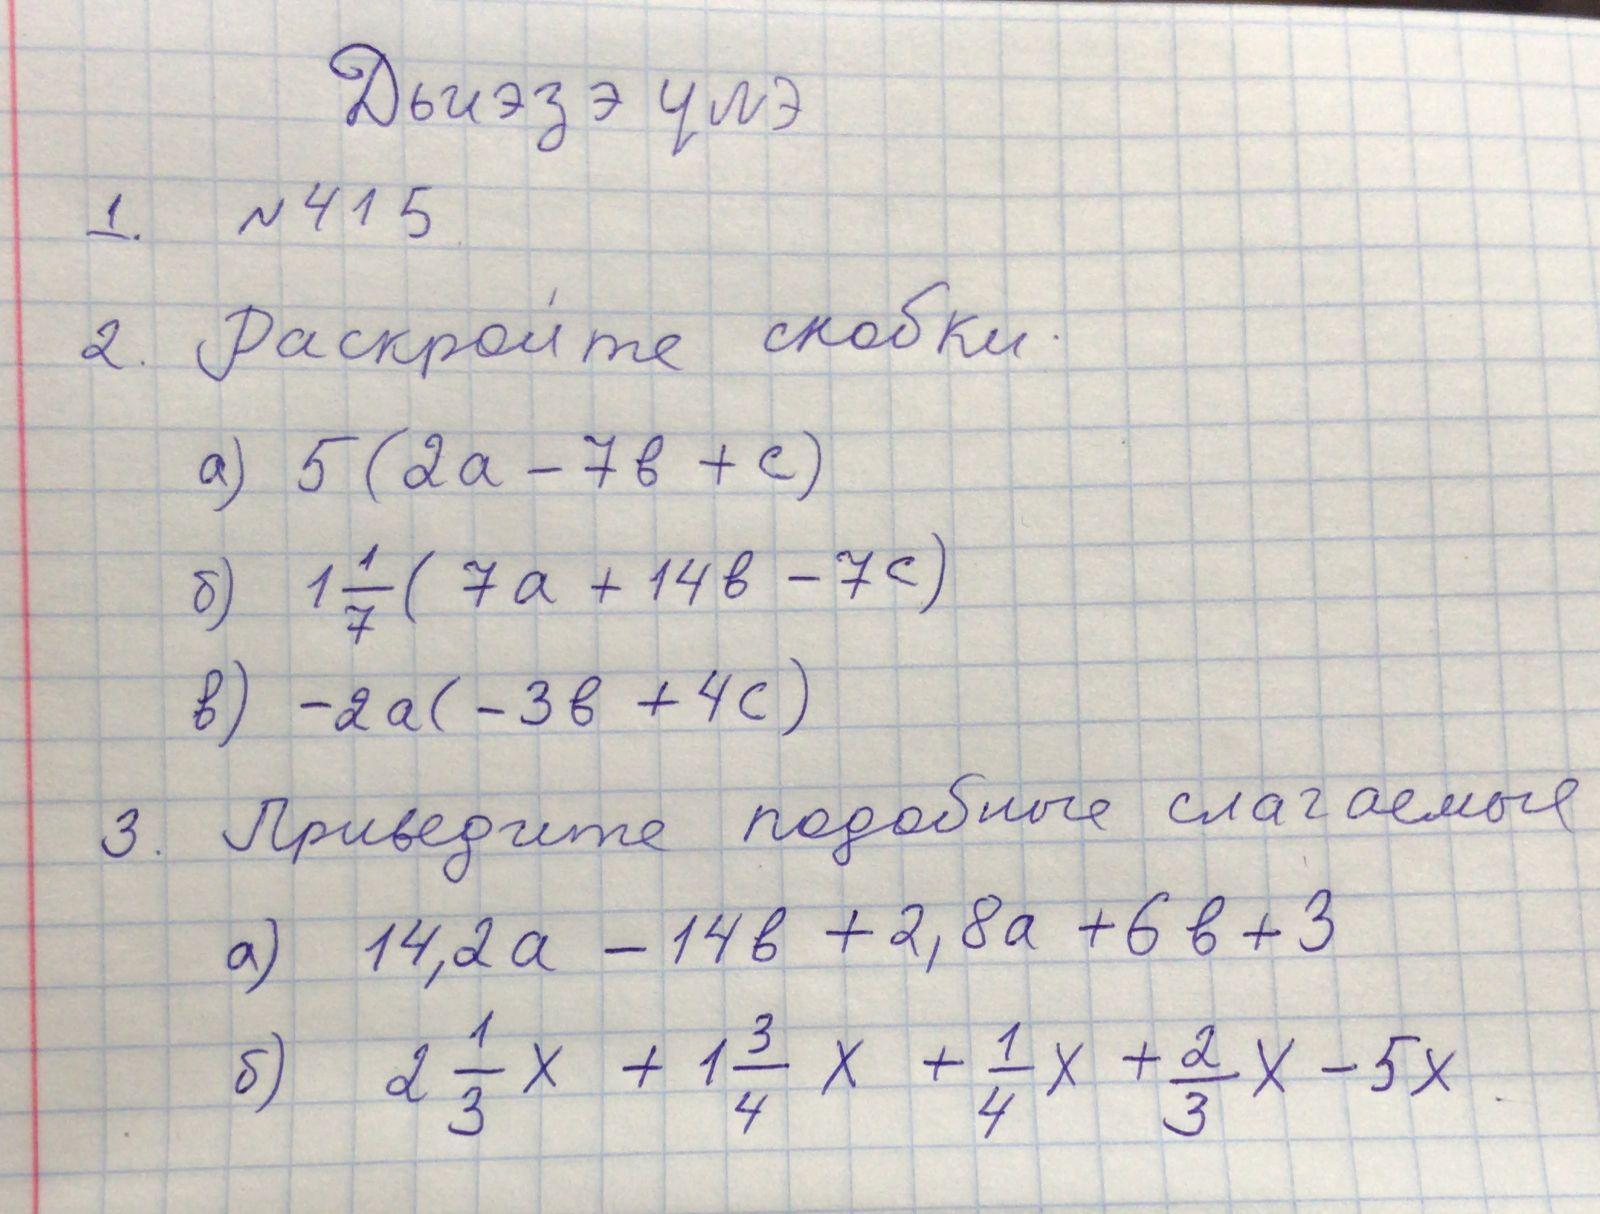 Дьиэзэ үлэ
1. №415
2. Раскройте скобки.
а) 5(2а - 7в + с)
б) 1 1/7 (7а + 14в - 7с)
в) -2а(-3в + 4с)
3. Приведите подобные слагаемые
а) 14,2а - 14в + 2,8а + 6в + 3
б) 2 1/3 х + 1 3/4 х + 1/4 х + 2/3 х - 5х